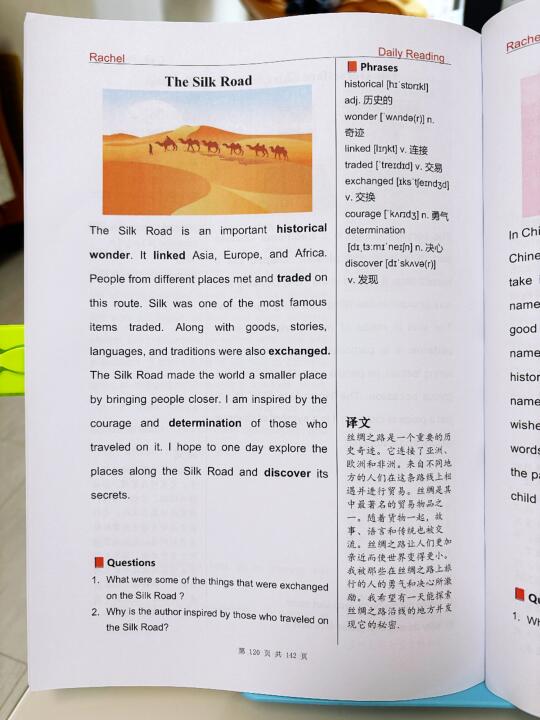 Rachel
Daily Reading
The Silk Road
The Silk Road is an important historical
wonder. It linked Asia, Europe, and Africa.
People from different places met and traded on
this route. Silk was one of the most famous
items traded. Along with goods, stories,
languages, and traditions were also exchanged.
The Silk Road made the world a smaller place
by bringing people closer. I am inspired by the
courage and determination of those who
traveled on it. I hope to one day explore the
places along the Silk Road and discover its
secrets.
Questions
1. What were some of the things that were exchanged
on the Silk Road ?
2. Why is the author inspired by those who traveled on
the Silk Road?
Phrases
historical [hɪˈstɒrɪkl]
adj. 历史的
wonder [ˈwʌndə(r)] n.
奇迹
linked [lɪŋkt] v. 连接
traded [ˈtreɪdɪd] v. 交易
exchanged [ɪksˈtʃeɪndʒd]
v. 交换
courage [ˈkʌrɪdʒ] n. 勇气
determination
[dɪˌtɜːmɪˈneɪʃn] n. 决心
discover [dɪˈskʌvə(r)]
v. 发现
译文
丝绸之路是一个重要的历
史奇迹。它连接了亚洲、
欧洲和非洲。来自不同地
方的人们在这条路线上相
遇并进行贸易。丝绸是其
中最著名的贸易物品之
一。随着货物一起，故
事、语言和传统也被交
流。丝绸之路让人们更加
亲近而使世界变得更小。
我被那些在丝绸之路上旅
行的人的勇气和决心所激
励。我希望有一天能探索
丝绸之路沿线的地方并发
现它的秘密.
第 120 页 共 142 页
Rache
In Chi
Chine
take
name
good
name
histor
name
wishe
words
the pa
child
Qu
1. Wh